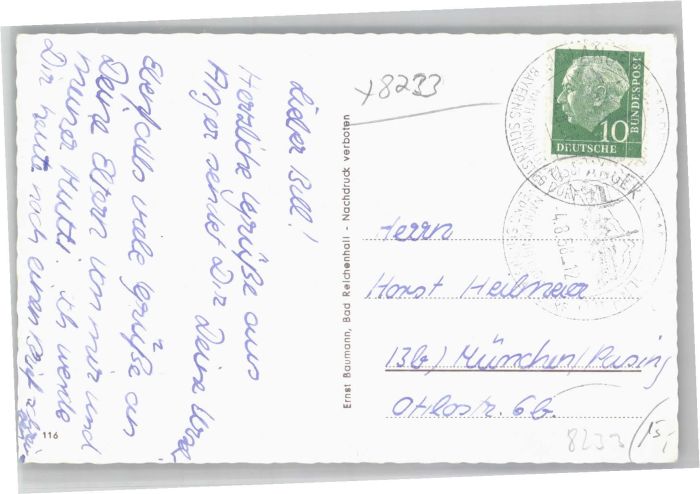 Lieber Bill!
Herzliche Grüße aus
Anger sendet Dir Deine
Ebenfalls viele Grüße an
Deine Eltern von mir und
meiner Mutti. Ich werde
Dir heute noch einen Brief
116
Ernst Baumann, Bad Reichenhall - Nachdruck verboten
x8233
DEUTSCHE
BUNDESPOST
10
ANGER
BAYERNS SCHÖNSTES
DORF
4.8.58-12
Herrn
Horst Heilmeier
13b) München/Pasing
Otilostr. 6b.
8233